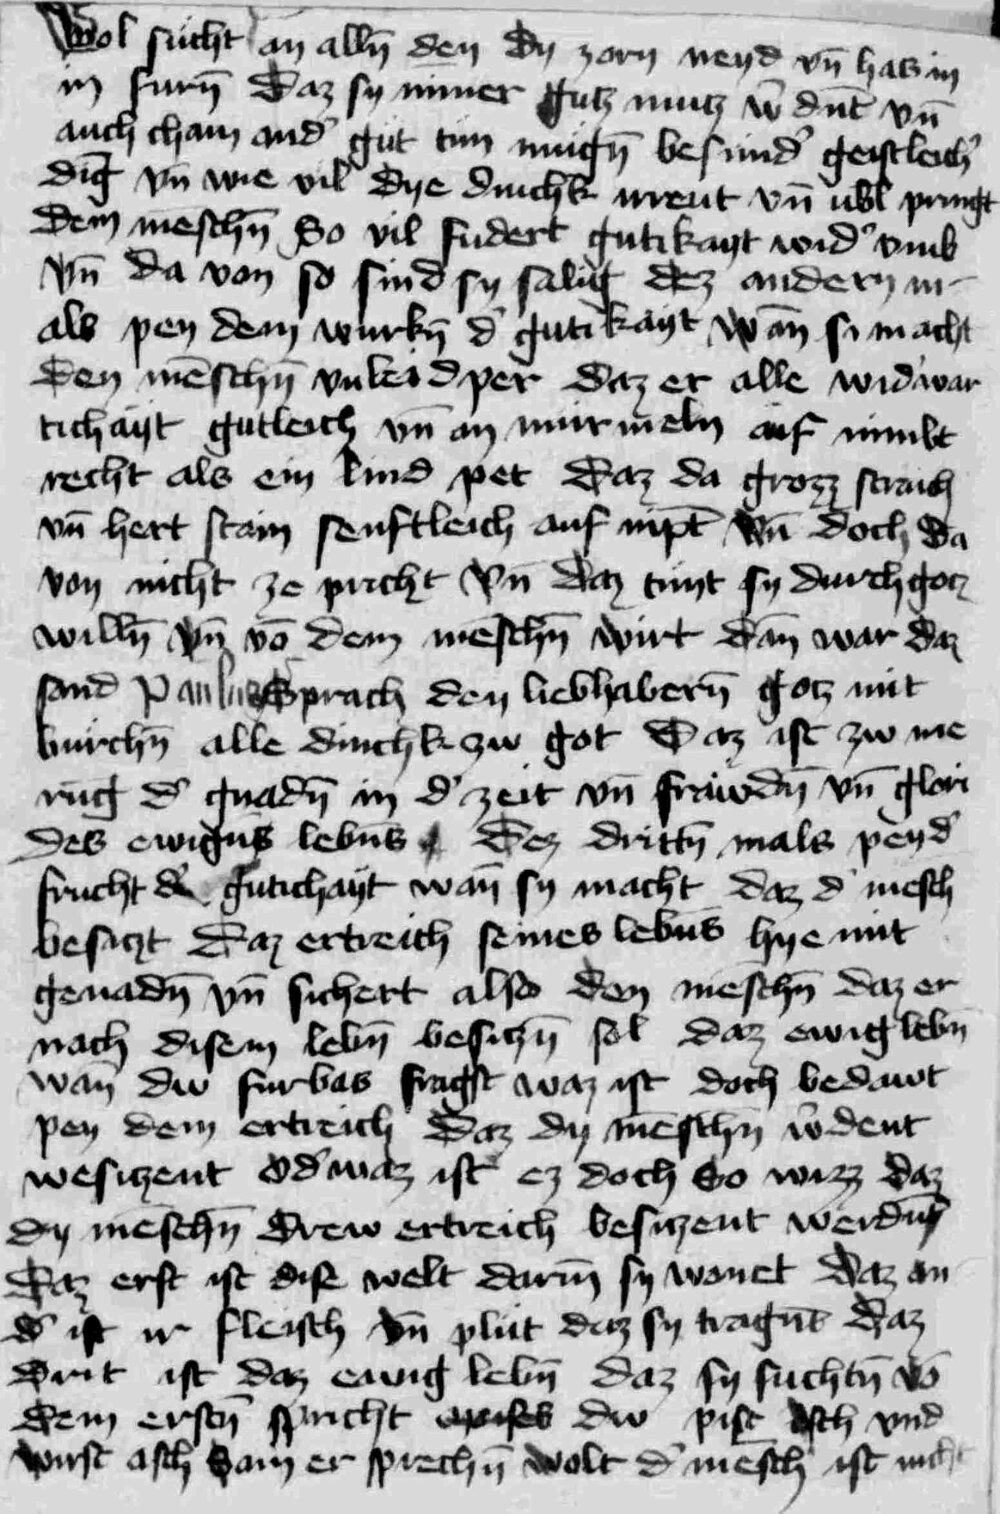 Wol sücht an alln̄ den dy zorn neyd vn̄ has in
in furn̄ daz sy nimer gutz nutz w̄ dn̄t vn̄
auch chain and' gut tun mugn̄ besund' geistleich'
ding vn̄ wie vil dye dinchk vreut vn̄ ubl pringt
dem meschn̄ So vil fudert gutikayt wid' vmb
Vn̄ da von so sind sy salig dez andern m
als pey dem wurkn̄ d' gutikayt Wan̄ si macht
den mēschn̄ vnleidper daz er alle wid'war
tichayt gutleich vn̄ an murmeln auf nimbt
recht als ein lind pet daz da grozz straich
vn̄ hert stain senftleich auf nipt Vn̄ doch da
von nicht ze pricht Vn̄ daz tunt sy durch gotz
willn̄ vn̄ vō dem meschn̄ wirt dan̄ war daz
sand Paulus Sprach den liebhabern̄ gotz mit
burchn̄ alle dinchk zw got Daz ist zw me
rūg d' gnadn̄ in d' zeit vn̄ frawdn̄ vn̄ glori
des ewign̄s lebn̄s Dez drittn̄ mals peyd'
frucht d' gutichayt wan̄ sy macht daz d' mesch
besiczt daz ertreich seines lebn̄s hye mit
genadn̄ vn̄ sichert also den meschn̄ daz er
nach disem lebn̄ besiczn̄ sol daz ewig lebn̄
wan̄ dw furbas fragst waz ist doch bedawt
pey dem ertreich daz dy mēschn̄ w'dent
wesiczent od' waz ist ez doch So wizz daz
dy meschn̄ drew ertreich besiczent werdn̄t
Daz erst ist dise welt darin̄ sy wonet daz an
d' ist ir fleisch vn̄ plut daz sy tragn̄t daz
drit ist daz ewig lebn̄ daz sy suchtn̄ Vō
dem erstn̄ spricht moises dw pist asch vnd
wirst asch Sam er sprechn̄ wolt d' mesch ist nicht